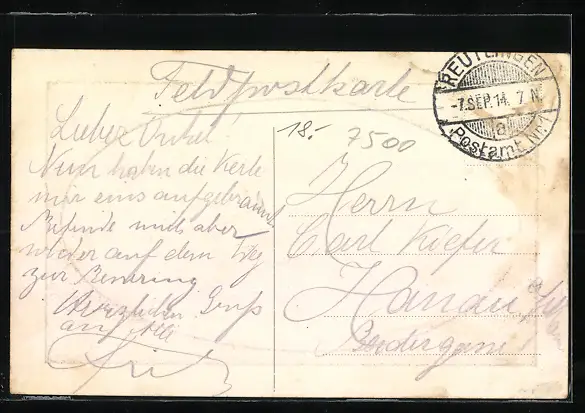 Feldpostkarte
REUTLINGEN
-7.SEP.14. 7 N.
a
Postamt Nr. 1
18.-
7500
Lieber Onkel
Nun haben die Kerle
mir eins aufgebrannt
Befinde mich aber
wieder auf dem Weg
zur Besserung
Herzlichen Gruß
an Alle
Fritz
Herrn
Carl Kiefer
Hanau